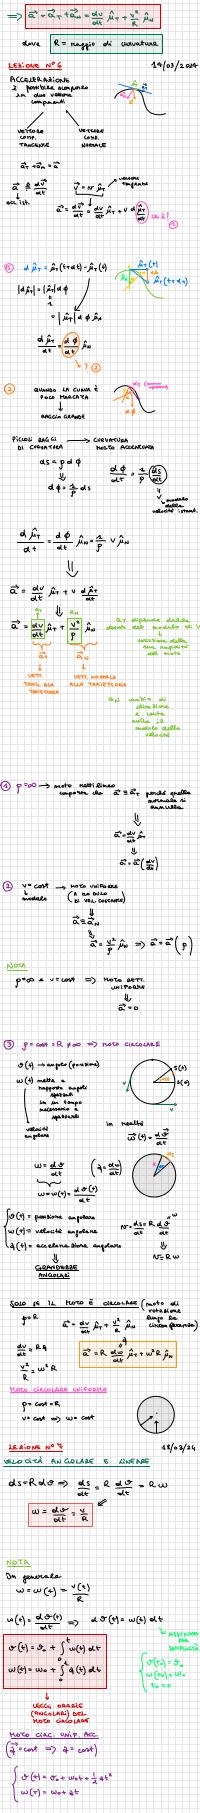 ⇒ a⃗ = a⃗_T + a⃗_N = dv/dt μ̂_T + v²/R μ̂_N
dove R = raggio di curvatura
LEZIONE N°6 14/03/2024
ACCELERAZIONE
è possibile scomporla
in due vettori
componenti
VETTORE COMP. TANGENTE
VETTORE COMP. NORMALE
a⃗_T + a⃗_N = a⃗
a⃗ ≝ dv⃗/dt
acc. ist.
v⃗ = v μ̂_T → versore tangente
a⃗ = dv⃗/dt = dv/dt μ̂_T + v dμ̂_T/dt
① d μ̂_T = μ̂_T(t+dt) - μ̂_T(t)
|dμ̂_T| = |μ̂_T| dϕ
= |μ̂_T| dϕ μ̂_N
d μ̂_T/dt = dϕ/dt μ̂_N
→ ? ②
② QUANDO LA CURVA È
POCO MARCATA
↓
RAGGIO GRANDE
PICCOLI RAGGI DI CURVATURA → CURVATURA MOLTO ACCENTUATA
ds = ρ dϕ
⇓
dϕ = 1/ρ ds
dϕ/dt = 1/ρ ds/dt
v → modulo della velocità istant.
d μ̂_T/dt = dϕ/dt μ̂_N = 1/ρ v μ̂_N
⇓
a⃗ = dv/dt μ̂_T + v dμ̂_T/dt
⇓
a⃗ = dv/dt μ̂_T + v²/ρ μ̂_N
a_T a_N
a⃗_T a⃗_N
a_T dipende dalla
derivata del modulo di v
↓
variazione della
sua rapidità
del moto
VETT. TANG. ALLA TRAIETTORIA
VETT. NORMALE ALLA TRAIETTORIA
a_N cambio di
direzione
e conta
anche il
modulo della
velocità
① ρ = ∞ → moto rettilineo
comporta che a⃗ ≡ a⃗_T perché quella
normale si
annulla
⇓
a⃗ = dv/dt μ̂_T
⇓
a⃗ = a⃗(dv/dt)
② v = cost → MOTO UNIFORME
modulo
(A MODULO
DI VEL. COSTANTE)
⇓
a⃗ ≡ a⃗_N
⇓
a⃗ = v²/ρ μ̂_N ⇒ a⃗ = a⃗(ρ)
NOTA
ρ = ∞ e v = cost ⇒ MOTO RETT.
UNIFORME
⇓
a⃗ = 0
③ ρ = cost = R ≠ ∞ ⇒ MOTO CIRCOLARE
ϑ(t) → angolo (posizione)
ω(t) mette a
rapporto angoli
spazzati
in un tempo
necessario a
spazzarli
velocità
angolare
in realtà
ω⃗(t) = dϑ⃗/dt
ω = dϑ/dt
⇓
ω = ω(t) = dϑ(t)/dt
ϑ(t) = posizione angolare
ω(t) = velocità angolare
α(t) = accelerazione angolare
⇓
GRANDEZZE
ANGOLARI
v = ds/dt = R dϑ/dt
⇓
v = R ω
SOLO SE IL MOTO È CIRCOLARE (moto di
rotazione
lungo la
circonferenza)
ρ = R
a⃗ = dv/dt μ̂_T + v²/R μ̂_N
dv/dt = R α
v²/R = ω² R
a⃗ = R dω/dt μ̂_T + ω² R μ̂_N
MOTO CIRCOLARE UNIFORME
ρ = cost = R
v = cost ⇒ ω = cost
LEZIONE N°7 18/03/24
VELOCITÀ ANGOLARE E LINEARE
ds = R dϑ ⇒ ds/dt = R dϑ/dt = R ω
ω = dϑ/dt = v/R
NOTA
In generale
ω = ω(t) = v(t)/R
ω(t) = dϑ(t)/dt ⇒ dϑ(t) = ω(t) dt
ϑ(t) = ϑ₀ + ∫ω(t) dt
ω(t) = ω₀ + ∫α(t) dt
ASSUMIAMO
PER
SEMPLICITÀ
ϑ(t₀) = ϑ₀
ω(t₀) = ω₀
t₀ = 0
LEGGI ORARIE
(ANGOLARI) DEL
MOTO CIRCOLARE
MOTO CIRC. UNIF. ACC.
(α⃗ = cost ⇒ α = cost)
ϑ(t) = ϑ₀ + ω₀t + 1/2 αt²
ω(t) = ω₀ + αt